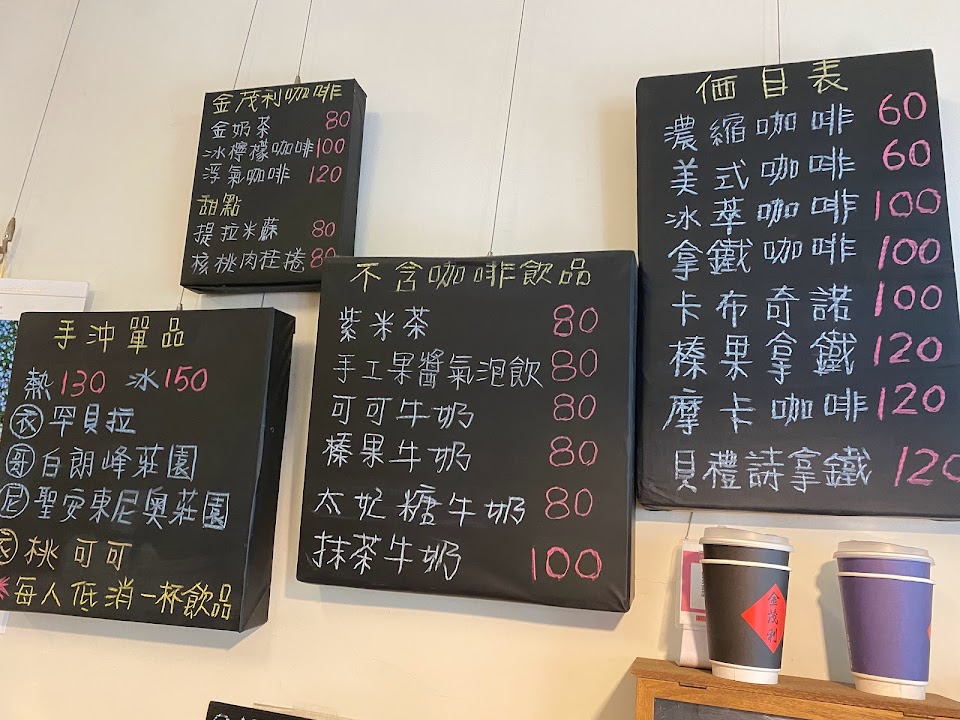 金茂利咖啡
金奶茶 80
冰檸檬咖啡 100
浮氣咖啡 120
甜點
提拉米蘇 80
核桃肉桂捲 80
手沖單品
熱130 冰150
衣 罕貝拉
哥 白朗峰莊園
尼 聖安東尼奧莊園
衣 桃可可
每人低消一杯飲品
不含咖啡飲品
紫米茶 80
手工果醬氣泡飲 80
可可牛奶 80
榛果牛奶 80
太妃糖牛奶 80
抹茶牛奶 100
価目表
濃縮咖啡 60
美式咖啡 60
冰萃咖啡 100
拿鐵咖啡 100
卡布奇諾 100
榛果拿鐵 120
摩卡咖啡 120
貝禮詩拿鐵 120
金茂利